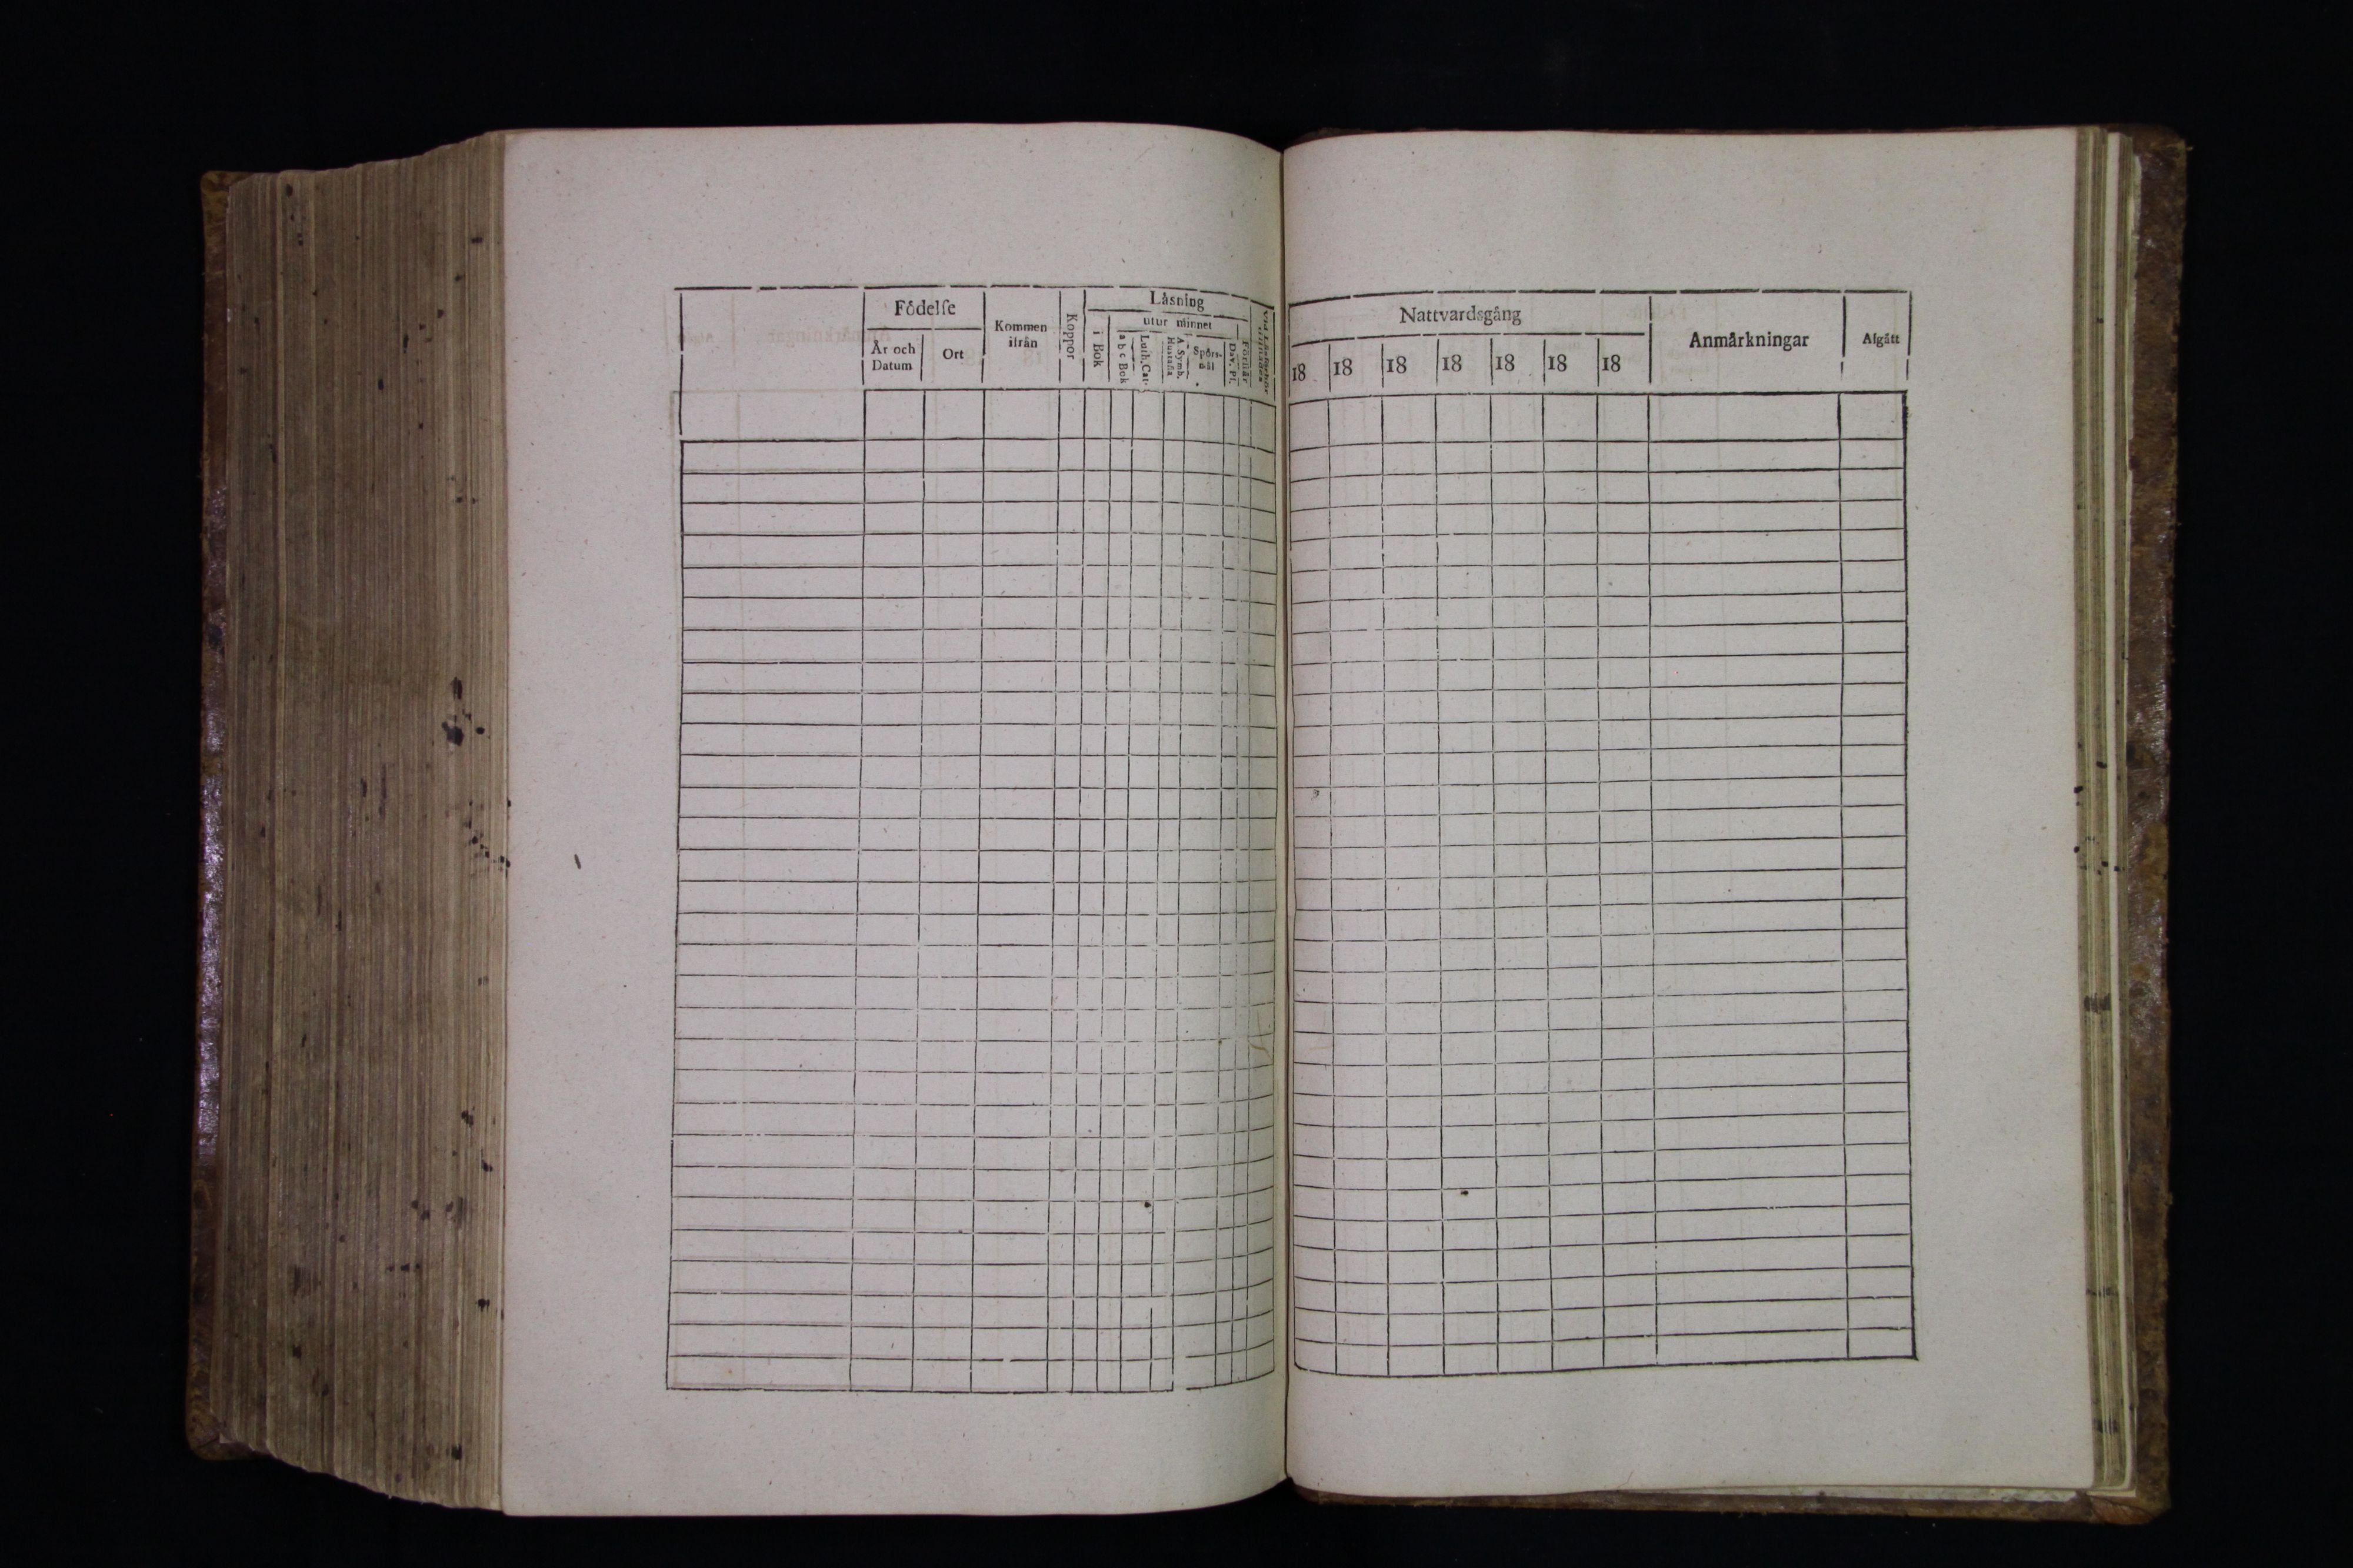 Födelse
År och
Datum
Ort
Kommen
ifrån
Koppor
Läsning
i Bok
utur minnet
a b c Bok
Luth. Cat.
A. Symb.
Hustafla
Spörs-
mål
Dav. Ps.
Förstår
Nattvardsgång
18 18 18 18 18 18 18
Anmärkningar
Afgått